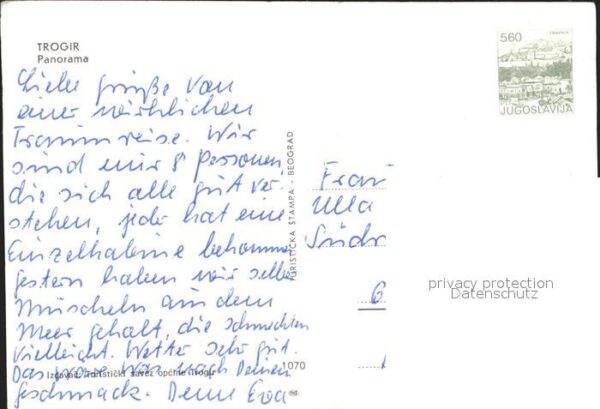 TROGIR
Panorama
Liebe Grüße von
einer wirklichen
Traumreise. Wir
sind nur 8 Personen
die sich alle gut ver-
stehen, jeder hat eine
Einzelkabine bekommen
gestern haben wir selber
Muscheln aus dem
Meer geholt, die schmeckten
vielleicht. Wetter sehr gut.
Das wäre was nach Deinem
Geschmack. Deine Eva
Izdavač: Turistički savez općine Trogir
1070
TURISTIČKA ŠTAMPA - BEOGRAD
560
TRAVNIK
JUGOSLAVIJA
Frau
Ulla
Südr
6
privacy protection
Datenschutz